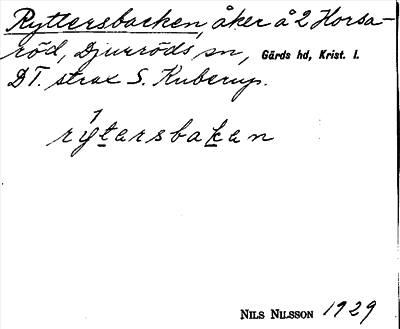 Ryttersbacken, åker å 2 Horsa-
röd, Djurröds sn, Gärds hd, Krist. l.
DT. strax S. Kuberup.
rytersbaken
NILS NILSSON 1929